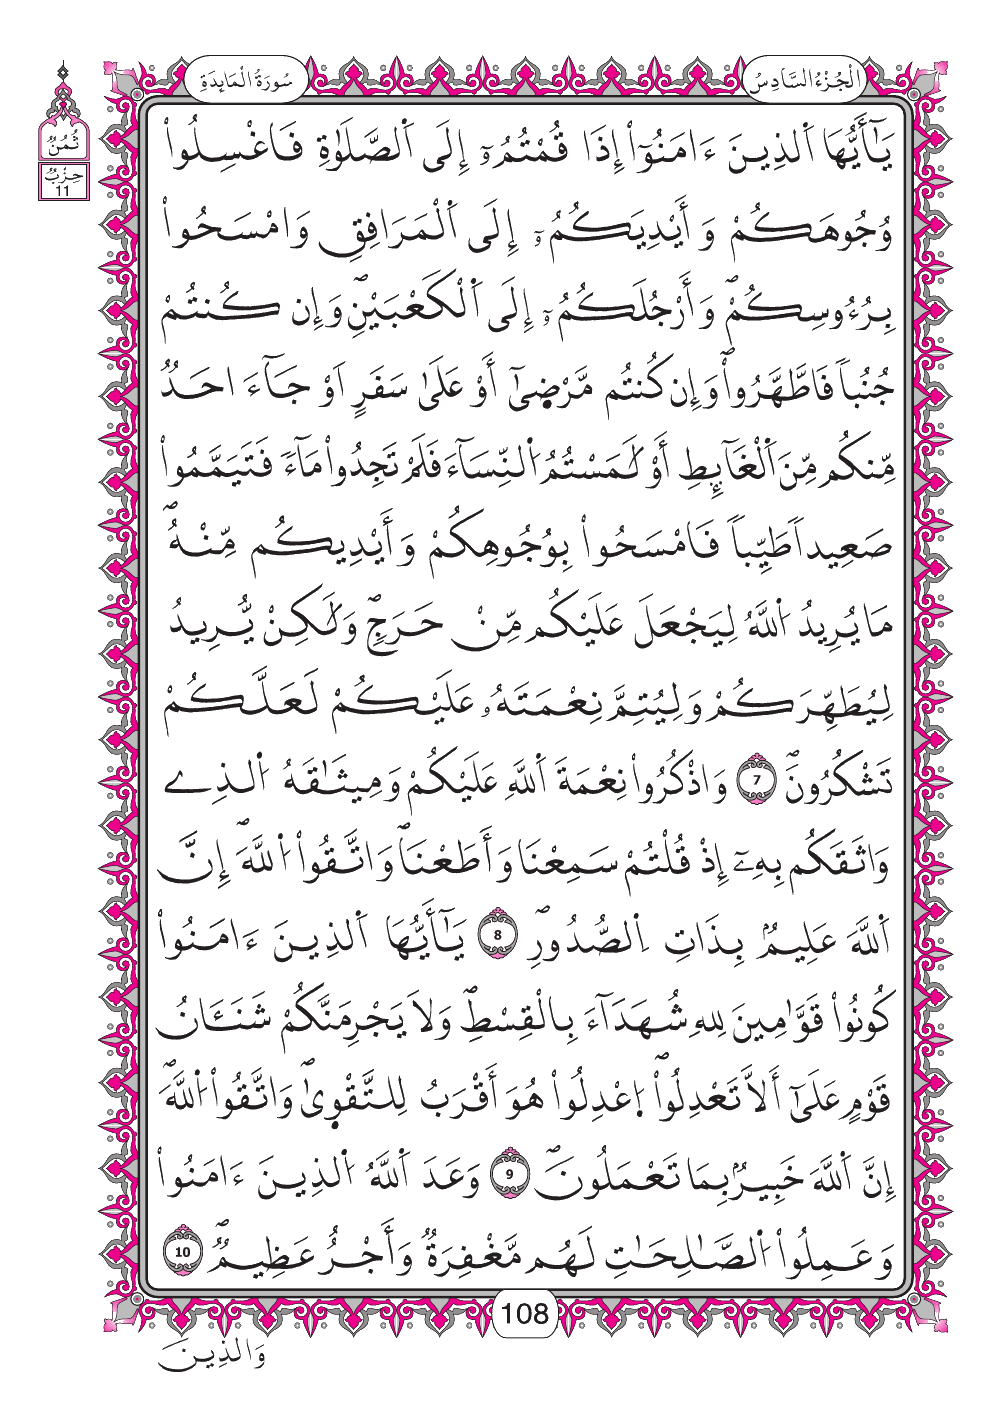 سُورَةُ الْمَائِدَةِ
الْجُزْءُ السَّادِسُ
ثُمُنٌ
حِزْبٌ
11
يَـٰٓأَيُّهَا اَ۬لذِينَ ءَامَنُوٓاْ إِذَا قُمْتُمُۥٓ إِلَى اَ۬لصَّلَوٰةِ فَاغْسِلُواْ
وُجُوهَكُمْ وَأَيْدِيَكُمُۥٓ إِلَى اَ۬لْمَرَافِقِ وَامْسَحُواْ
بِرُءُوسِكُمْۖ وَأَرْجُلَكُمُۥٓ إِلَى اَ۬لْكَعْبَيْنِۖ وَإِن كُنتُمْ
جُنُباٗ فَاطَّهَّرُواْۖ وَإِن كُنتُم مَّرْضِىٰٓ أَوْ عَلَىٰ سَفَرٍ اَوْ جَآءَ احَدٞ
مِّنكُم مِّنَ اَ۬لْغَآئِطِ أَوْ لَـٰمَسْتُمُ اُ۬لنِّسَآءَ فَلَمْ تَجِدُواْ مَآءٗ فَتَيَمَّمُواْ
صَعِيداٗ طَيِّباٗ فَامْسَحُواْ بِوُجُوهِكُمْ وَأَيْدِيكُم مِّنْهُۖ
مَا يُرِيدُ اُ۬للَّهُ لِيَجْعَلَ عَلَيْكُم مِّنْ حَرَجٖۖ وَلَـٰكِنْ يُّرِيدُ
لِيُطَهِّرَكُمْ وَلِيُتِمَّ نِعْمَتَهُۥ عَلَيْكُمْ لَعَلَّكُمْ
تَشْكُرُونَۖ 7 وَاذْكُرُواْ نِعْمَةَ اَ۬للَّهِ عَلَيْكُمْ وَمِيثَـٰقَهُ اُ۬لذِے
وَاثَقَكُم بِهِۦٓ إِذْ قُلْتُمْ سَمِعْنَا وَأَطَعْنَاۖ وَاتَّقُواْ اُ۬للَّهَۖ إِنَّ
اَ۬للَّهَ عَلِيمُۢ بِذَاتِ اِ۬لصُّدُورِۖ 8 يَـٰٓأَيُّهَا اَ۬لذِينَ ءَامَنُواْ
كُونُواْ قَوَّٰمِينَ لِلهِ شُهَدَآءَ بِالْقِسْطِۖ وَلاَ يَجْرِمَنَّكُمْ شَنَـَٔانُ
قَوْمٍ عَلَىٰٓ أَلاَّ تَعْدِلُواْۖ اُ۪عْدِلُواْ هُوَ أَقْرَبُ لِلتَّقْوِىٰۖ وَاتَّقُواْ اُ۬للَّهَۖ
إِنَّ اَ۬للَّهَ خَبِيرُۢ بِمَا تَعْمَلُونَۖ 9 وَعَدَ اَ۬للَّهُ اُ۬لذِينَ ءَامَنُواْ
وَعَمِلُواْ اُ۬لصَّـٰلِحَـٰتِ لَهُم مَّغْفِرَةٞ وَأَجْرٌ عَظِيمٞۖ 10
108
وَالذِينَ